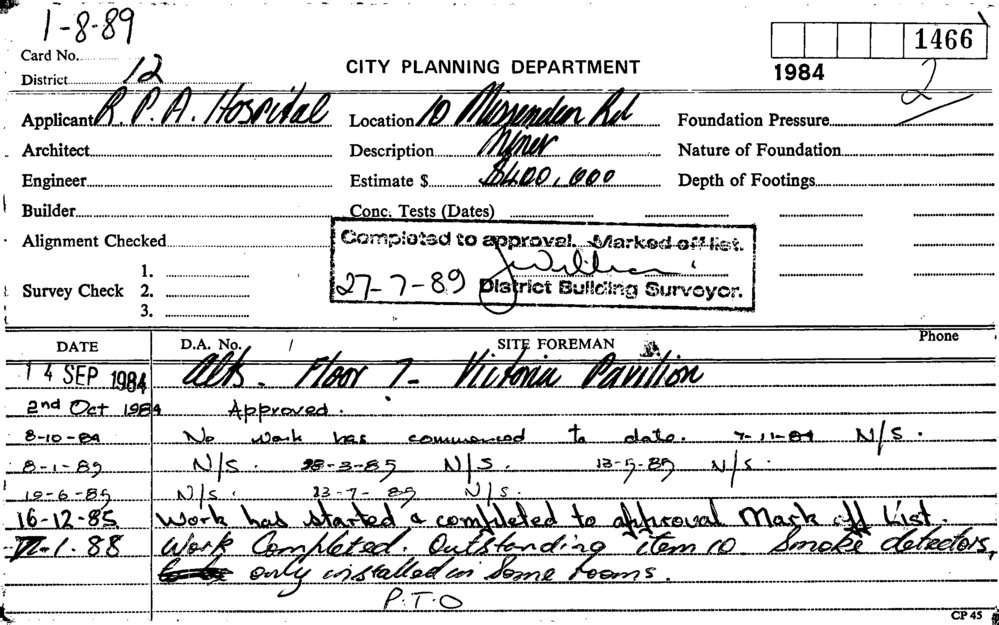 1-8-89
Card No.
1466
District 12
CITY PLANNING DEPARTMENT
1984
2
Applicant R. P. A. Hospital Location 10 Missenden Rd Foundation Pressure
Architect Description Minor Nature of Foundation
Engineer Estimate $ $400,000 Depth of Footings
Builder Conc. Tests (Dates)
Alignment Checked
Completed to approval. Marked off list.
1.
Survey Check 2.
27-7-89 District Building Surveyor.
3.
DATE D.A. No. SITE FOREMAN Phone
14 SEP 1984 Alts. Floor 7 - Victoria Pavilion
2nd Oct 1984 Approved.
8-10-84 No work has commenced to date. 7-11-84 N/S.
8-1-85 N/S. 28-3-85 N/S. 13-5-85 N/S.
19-6-85 N/S. 23-7-85 N/S.
16-12-85 Work has started & completed to approval Mark off List.
1.88 Work Completed. Outstanding item 10. Smoke detectors,
only installed in some rooms.
P.T.O
CP 45